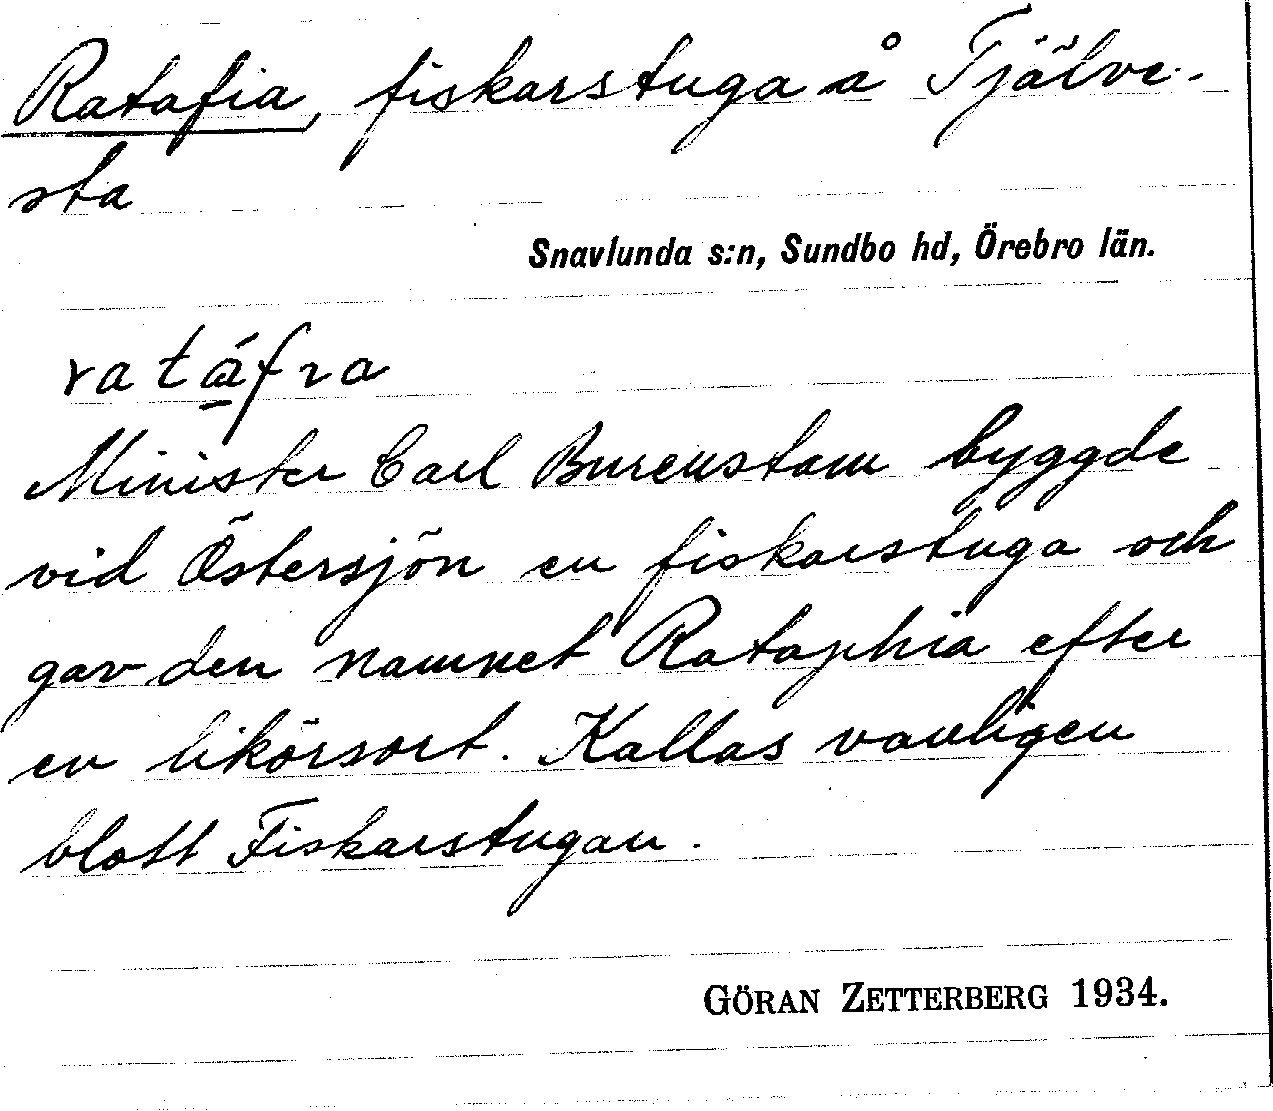 Ratafia, fiskarstuga å Tjälve-
sta
Snavlunda s:n, Sundbo hd, Örebro län.
Minister Carl Burenstam byggde
vid Östersjön en fiskarstuga och
gav den namnet Rataphia efter
en likörsort. Kallas vanligen
blott Fiskarstugan.
GÖRAN ZETTERBERG 1934.